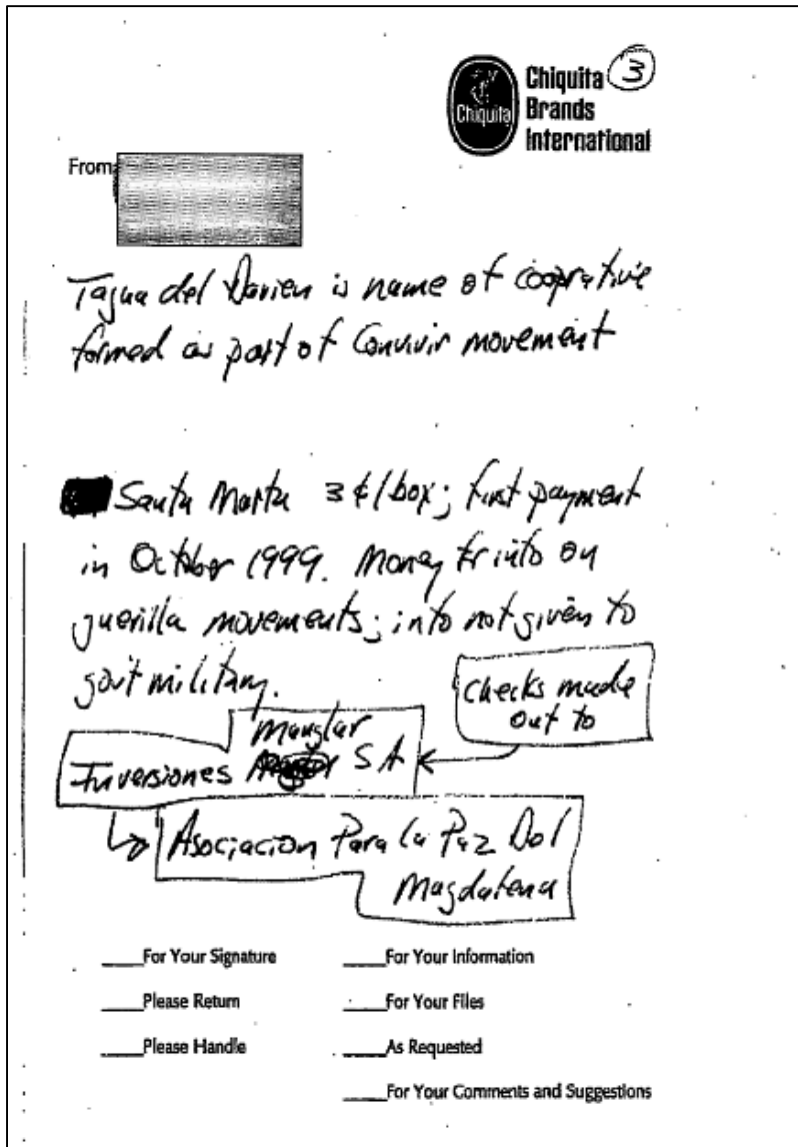 Chiquita
Chiquita 3
Brands
International
From
Tagua del Darien is name of cooprative
formed as part of Convivir movement
Santa Marta 3¢/box; first payment
in October 1999. Money for info on
guerilla movements; info not given to
gov't military.
checks made
out to
Manglar
Inversiones SA
Asociacion Para la Paz Del
Magdalena
For Your Signature
For Your Information
Please Return
For Your Files
Please Handle
As Requested
For Your Comments and Suggestions